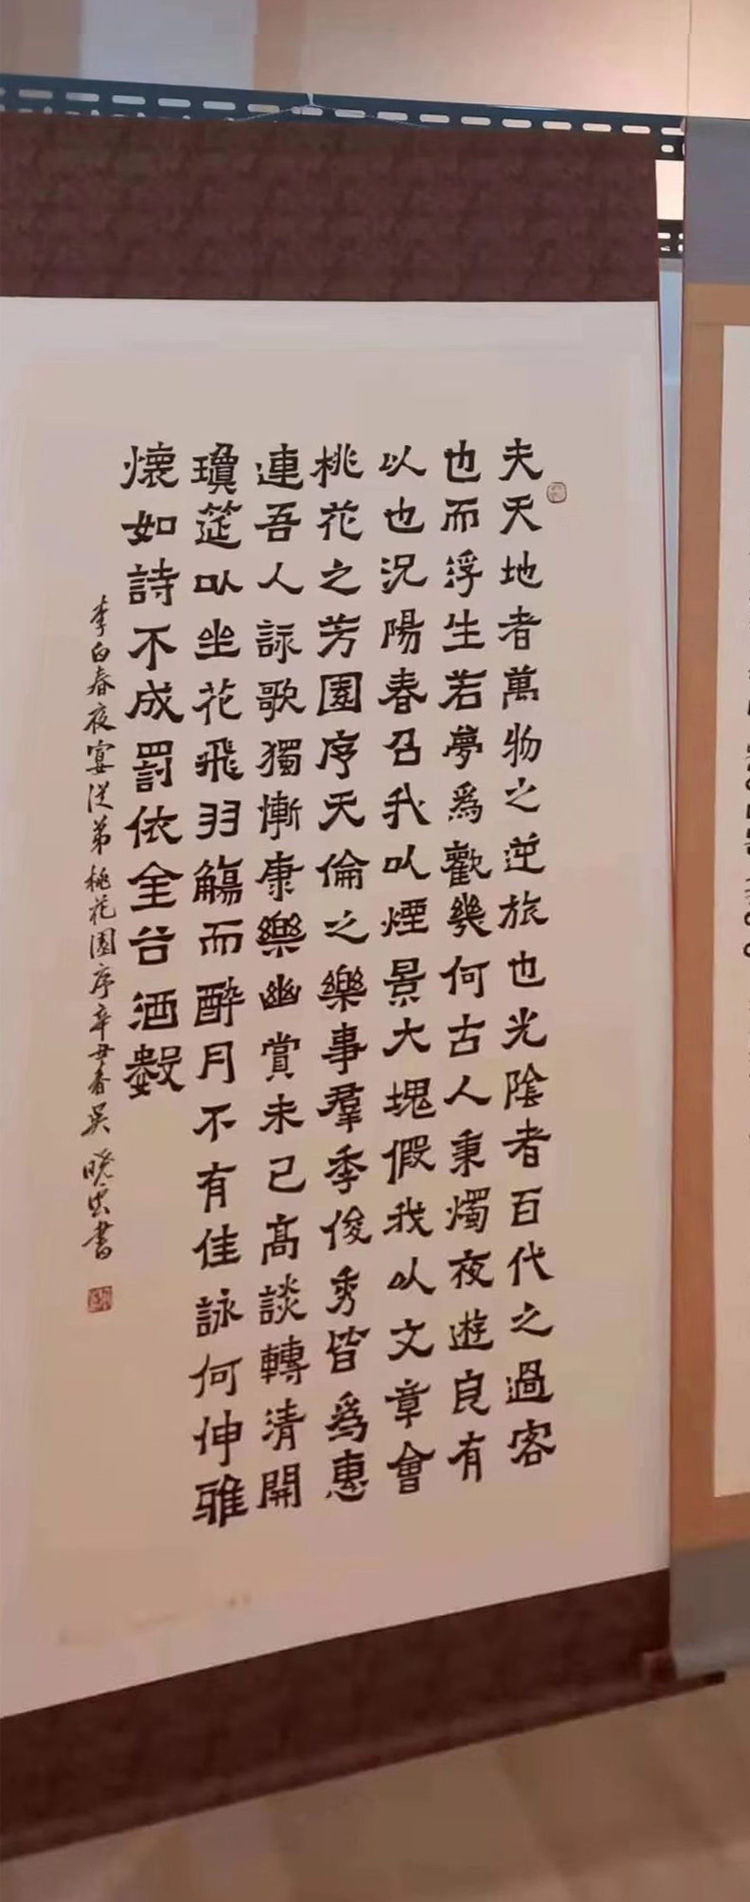 夫天地者萬物之逆旅也光陰者百代之過客
也而浮生若夢爲歡幾何古人秉燭夜遊良有
以也況陽春召我以煙景大塊假我以文章會
桃花之芳園序天倫之樂事羣季俊秀皆爲惠
連吾人詠歌獨慚康樂幽賞未已高談轉清開
瓊筵以坐花飛羽觴而醉月不有佳詠何伸雅
懷如詩不成罰依金谷酒數
李白春夜宴從弟桃花園序辛丑春吳曉書